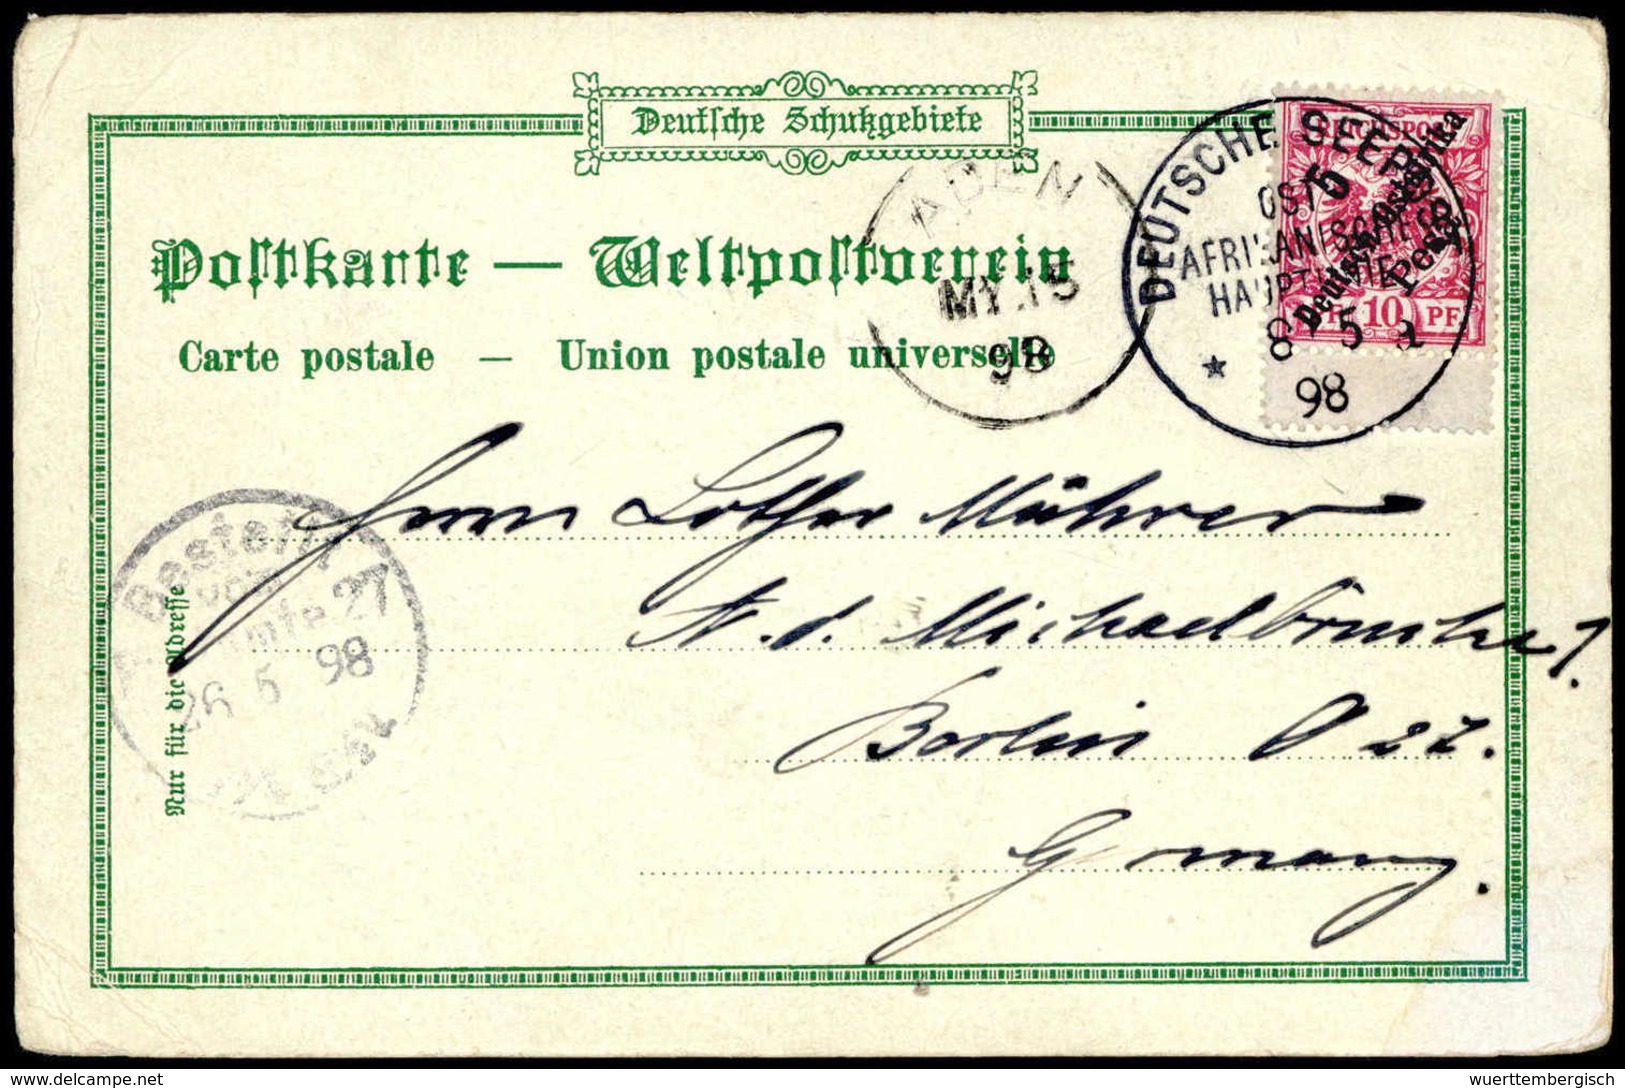 Deutsche Schutzgebiete
Postkarte — Weltpostverein
Carte postale — Union postale universelle
ADEN
MY. 15
98
DEUTSCHE SEEPOST
OST
AFRIKANISCHE
HAUPTLINIE
8 5 a
98
REICHSPOST
5
Deutsch-Ostafrika
Pesa 5
10 PF
Herrn Lothar Mührer
A. d. Michaelbrücke 1.
Berlin O 27.
Germany.
Bestellt
vom
Postamte 27
26 5 98
Nur für die Adresse
wuerttembergisch